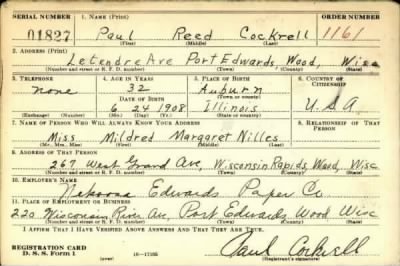 SERIAL NUMBER 1. NAME (Print) ORDER NUMBER
01827 Paul Reed Cockrell 1161
(First) (Middle) (Last)
2. ADDRESS (Print)
Letendre Ave Port Edwards, Wood, Wisc
(Number and street or R. F. D. number) (Town) (County) (State)
3. TELEPHONE 4. AGE IN YEARS 5. PLACE OF BIRTH 6. COUNTRY OF CITIZENSHIP
none 32 Auburn
DATE OF BIRTH (Town or county)
6 24 1908 Illinois U.S.A
(Exchange) (Number) (Mo.) (Day) (Yr.) (State or country)
7. NAME OF PERSON WHO WILL ALWAYS KNOW YOUR ADDRESS 8. RELATIONSHIP OF THAT PERSON
Miss Mildred Margaret Nilles
(Mr., Mrs., Miss) (First) (Middle) (Last)
9. ADDRESS OF THAT PERSON
267 West Grand Ave, Wisconsin Rapids, Wood, Wisc
(Number and street or R. F. D. number) (Town) (County) (State)
10. EMPLOYER'S NAME
Nekoosa Edwards Paper Co.
11. PLACE OF EMPLOYMENT OR BUSINESS
220 Wisconsin River Av, Port Edwards Wood Wisc
(Number and street or R. F. D. number) (Town) (County) (State)
I AFFIRM THAT I HAVE VERIFIED ABOVE ANSWERS AND THAT THEY ARE TRUE.
REGISTRATION CARD Paul Cockrell
D. S. S. Form 1 (over) 16-17105 (Registrant's signature)